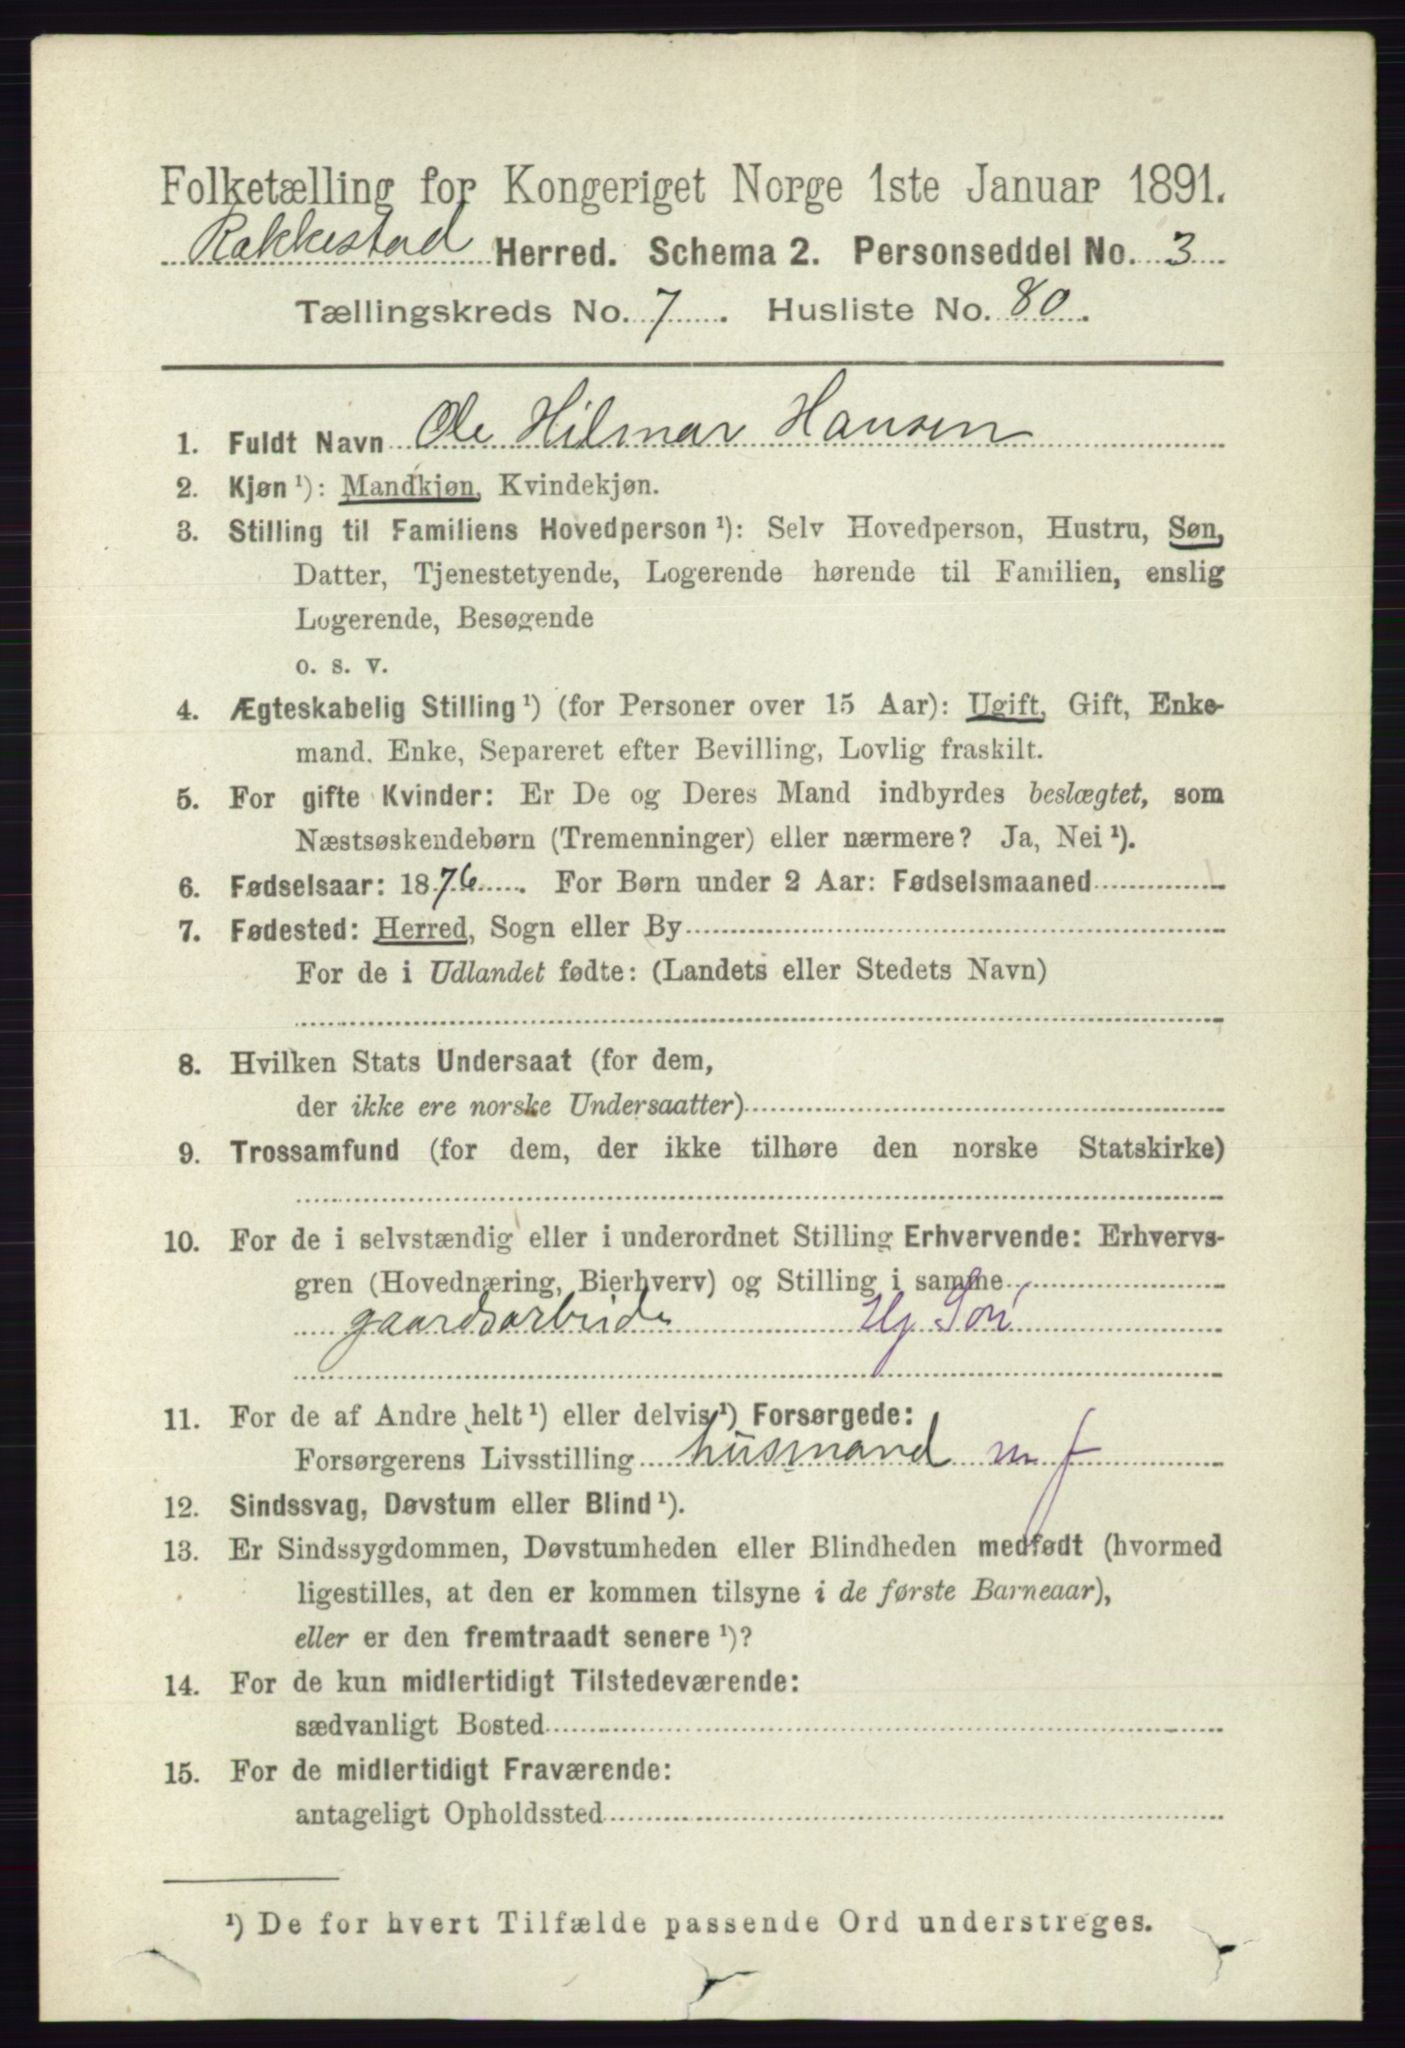 Folketælling for Kongeriget Norge 1ste Januar 1891.
Rakkestad Herred. Schema 2. Personseddel No. 3
Tællingskreds No. 7. Husliste No. 80.
1. Fuldt Navn Ole Hilmar Hansen
2. Kjøn ¹): Mandkjøn, Kvindekjøn.
3. Stilling til Familiens Hovedperson ¹): Selv Hovedperson, Hustru, Søn,
Datter, Tjenestetyende, Logerende hørende til Familien, enslig
Logerende, Besøgende
o. s. v.
4. Ægteskabelig Stilling ¹) (for Personer over 15 Aar): Ugift, Gift, Enke-
mand, Enke, Separeret efter Bevilling, Lovlig fraskilt.
5. For gifte Kvinder: Er De og Deres Mand indbyrdes beslægtet, som
Næstsøskendebørn (Tremenninger) eller nærmere? Ja, Nei ¹).
6. Fødselsaar: 1876. For Børn under 2 Aar: Fødselsmaaned
7. Fødested: Herred, Sogn eller By
For de i Udlandet fødte: (Landets eller Stedets Navn)
8. Hvilken Stats Undersaat (for dem,
der ikke ere norske Undersaatter)
9. Trossamfund (for dem, der ikke tilhøre den norske Statskirke)
10. For de i selvstændig eller i underordnet Stilling Erhvervende: Erhvervs-
gren (Hovednæring, Bierhverv) og Stilling i samme
gaardsarbeide Hj. Søn
11. For de af Andre helt ¹) eller delvis ¹) Forsørgede:
Forsørgerens Livsstilling husmand m j
12. Sindssvag, Døvstum eller Blind ¹).
13. Er Sindssygdommen, Døvstumheden eller Blindheden medfødt (hvormed
ligestilles, at den er kommen tilsyne i de første Barneaar),
eller er den fremtraadt senere ¹)?
14. For de kun midlertidigt Tilstedeværende:
sædvanligt Bosted
15. For de midlertidigt Fraværende:
antageligt Opholdssted
¹) De for hvert Tilfælde passende Ord understreges.